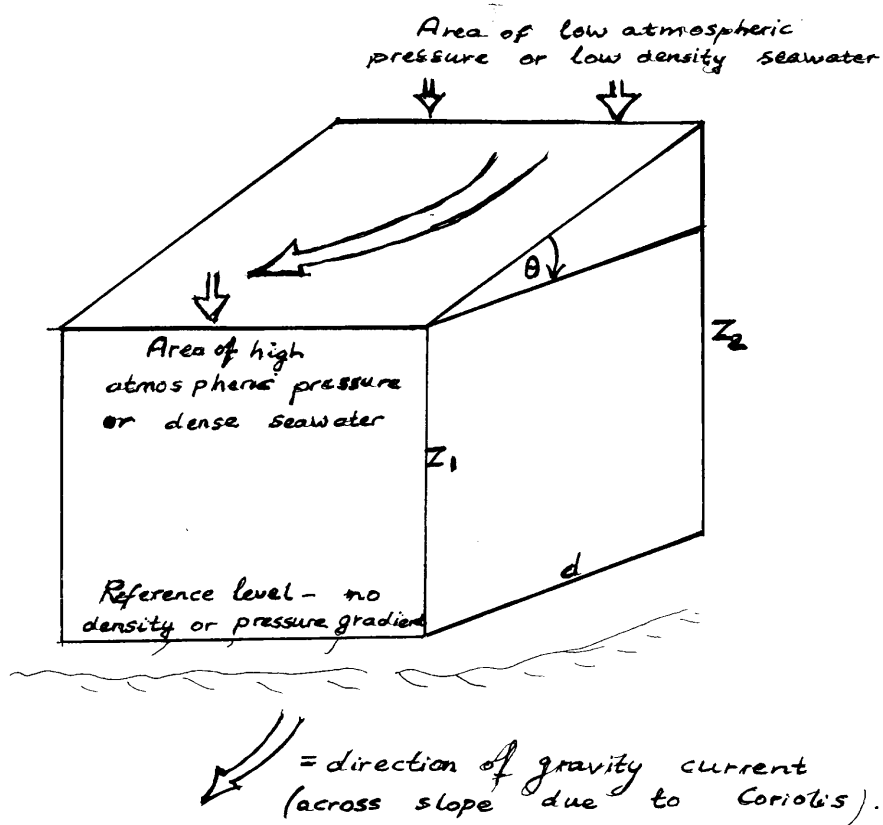 Area of low atmospheric
pressure or low density seawater
θ
Z₂
Area of high
atmospheric pressure
or dense seawater
Z₁
d
Reference level - no
density or pressure gradient
= direction of gravity current
(across slope due to Coriolis).